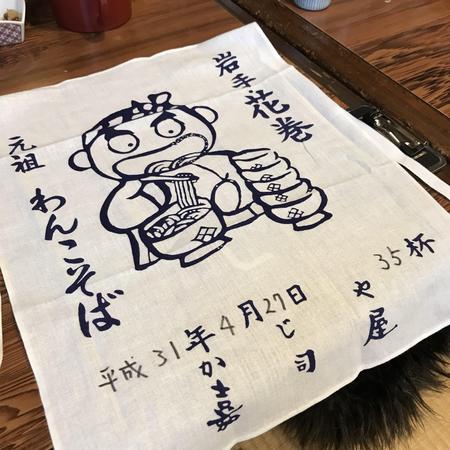 岩手花巻
元祖わんこそば
35杯
平成31年4月27日
かじや
嘉司屋